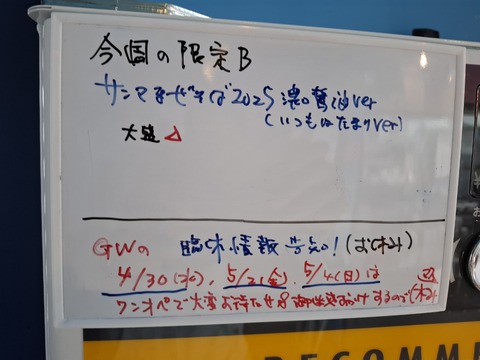 今回の限定B
サンマまぜそば2025 濃口醤油ver
(いつもはたまりver)
大盛△
GWの 臨休情報告知!(お休み)
4/30(水)、5/2(金)、5/4(日)は
ワンオペで大変お待たせ&御迷惑おかけするので(休み)
RECOMME